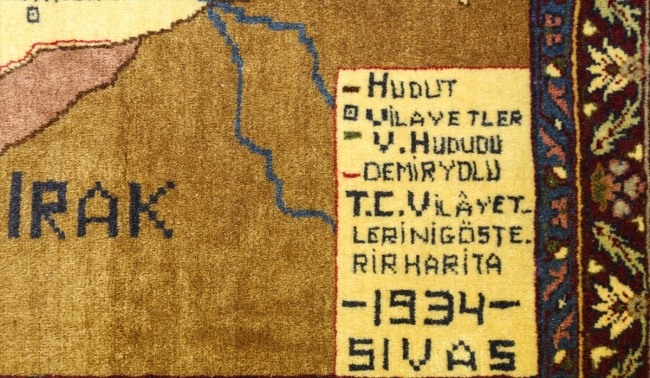 IRAK
HUDUT
VİLAYETLER
V. HUDUDU
DEMİRYOLU
T.C. VİLÂYET-
LERİNİGÖSTE.
RİR HARİTA
-1934-
SIVAS